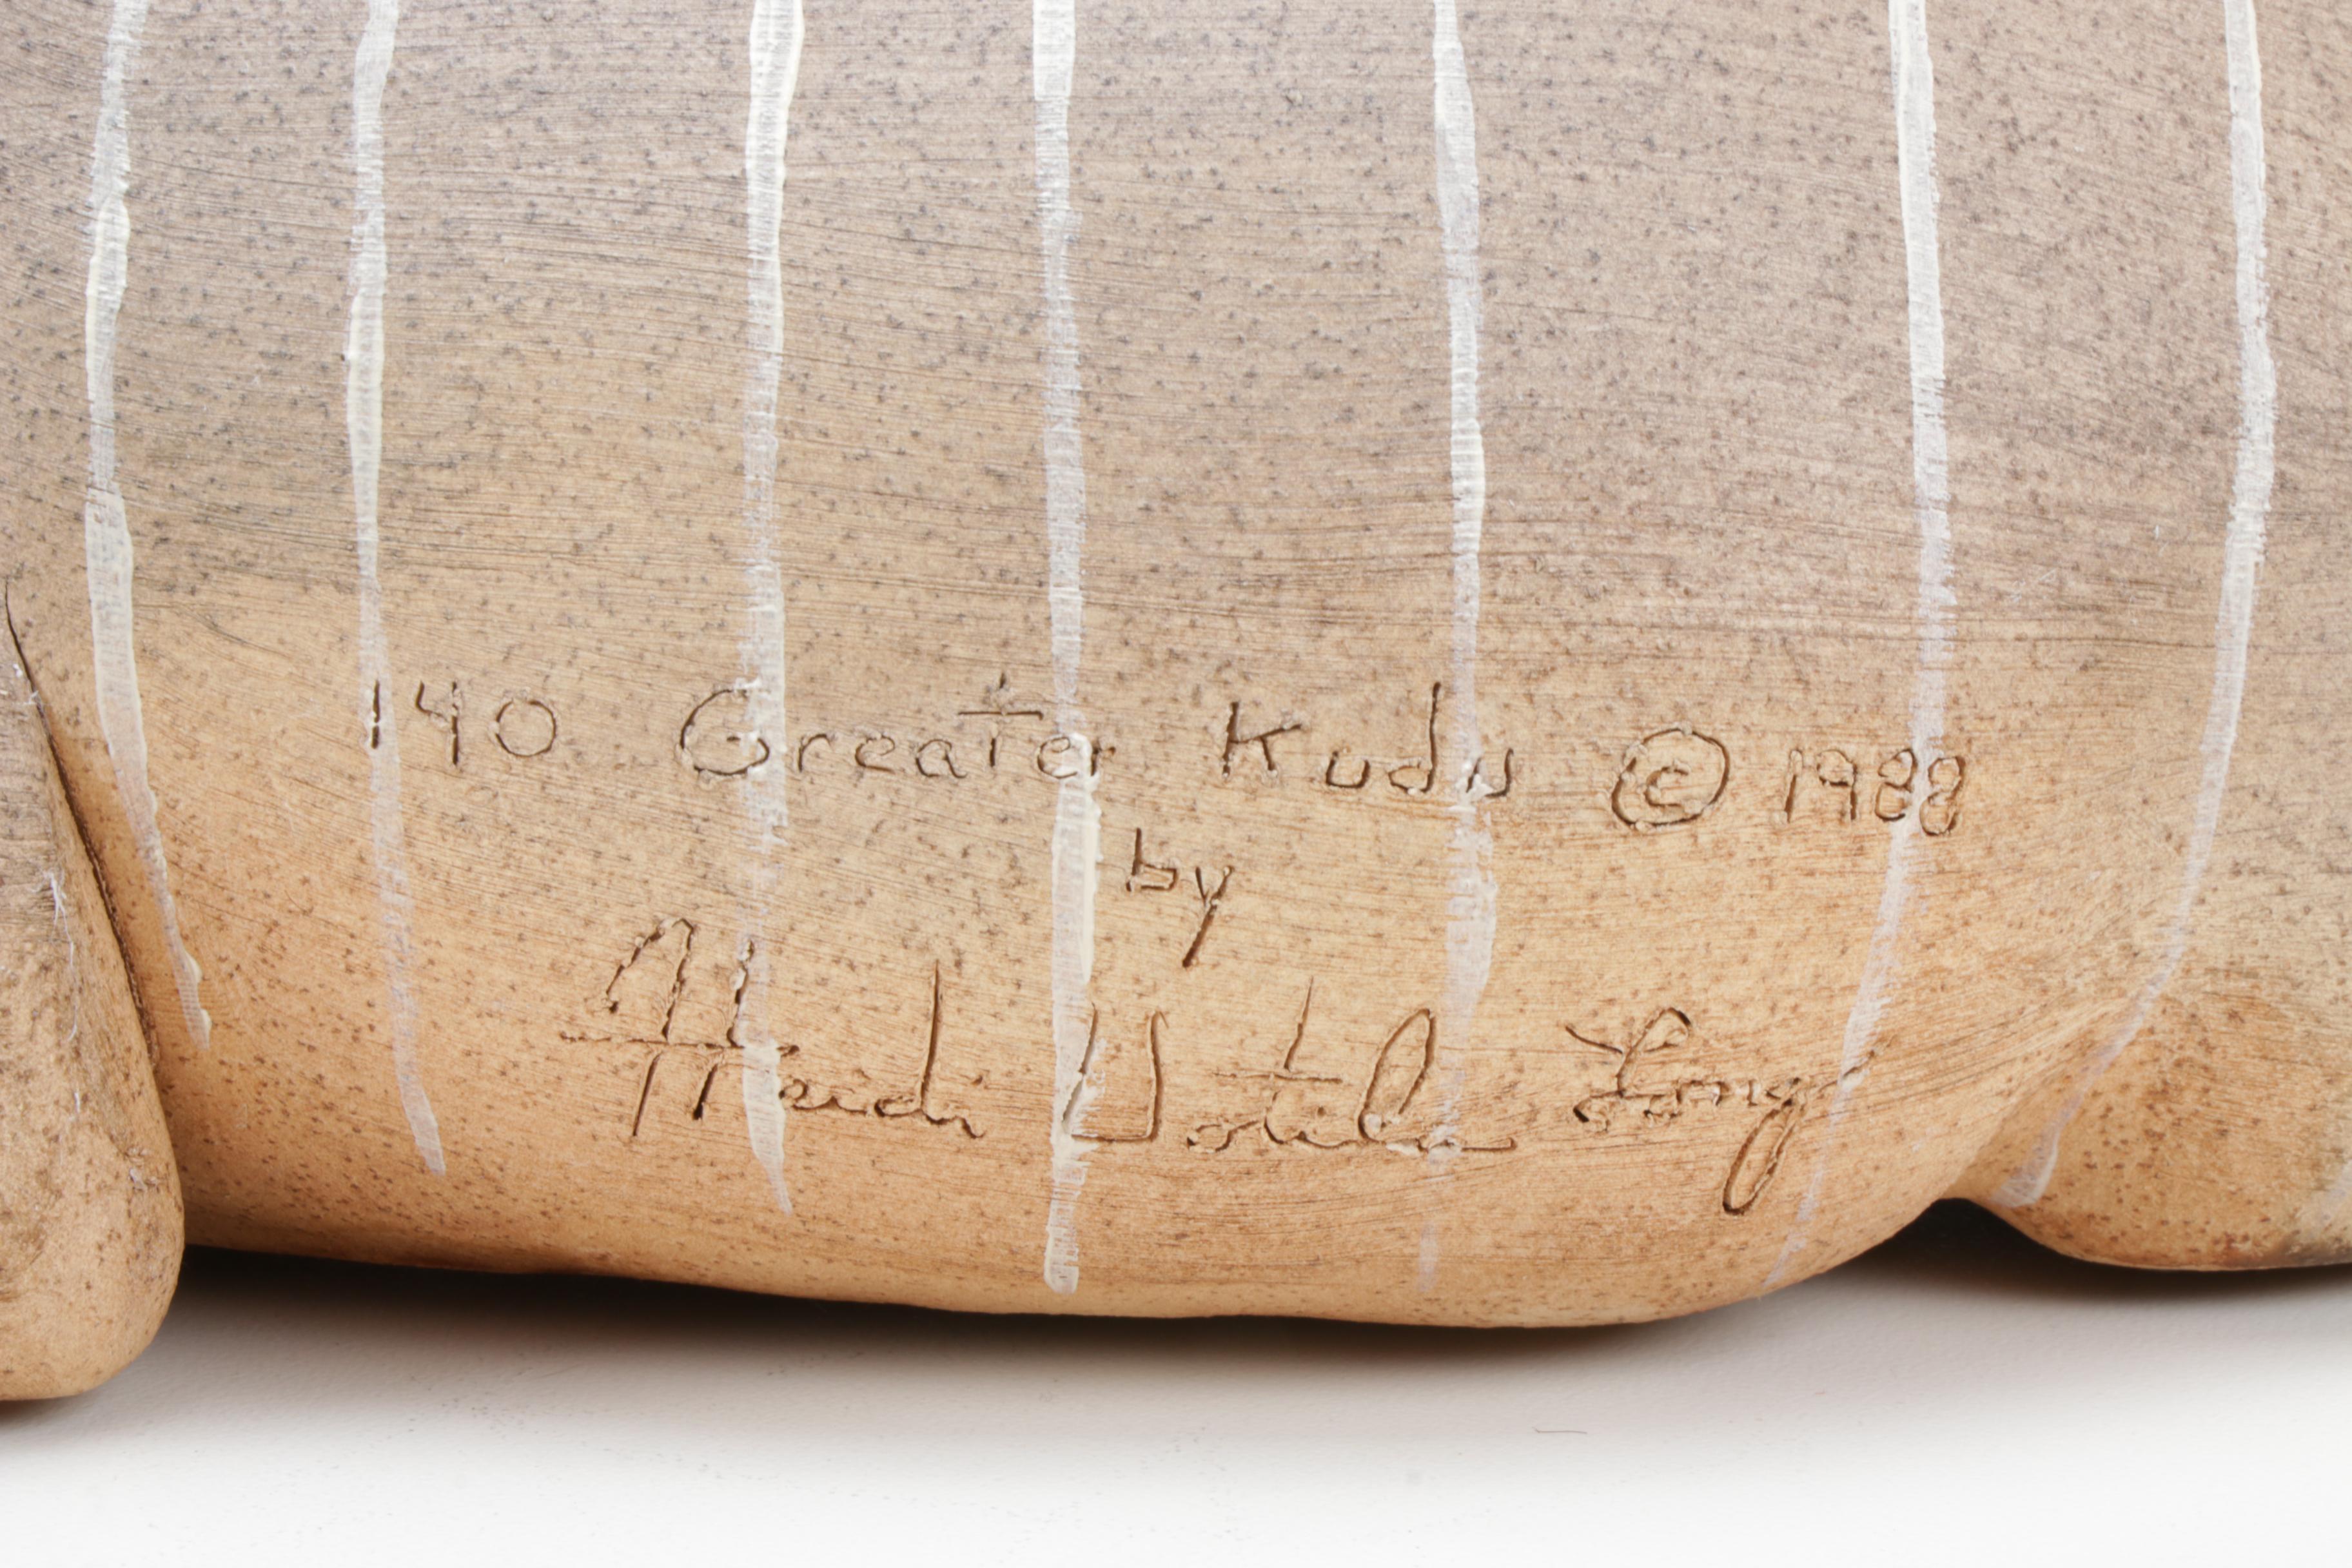 140 Greater Kudu © 1988
by
Heidi Uotila Long